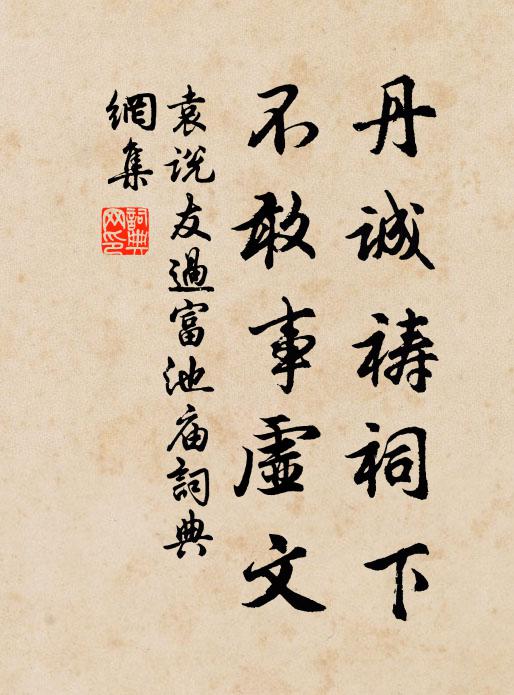 丹誠祷祠下
不敢事虛文
袁說友過富池庙詞典
網集
詞典网印